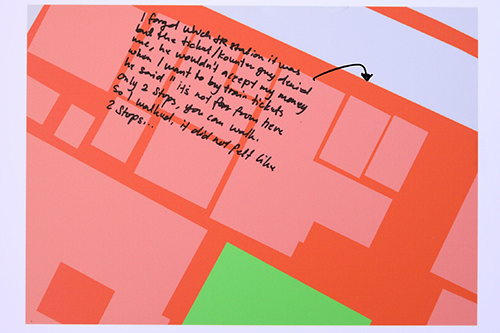 I forgot which JR station it was
but the ticket/kounter guy denied
me, he wouldn't accept my money
when I want to by train tickets
he said " it's not far from here
only 2 stops, you can walk.
so I walked, it did not felt like
2 stops...